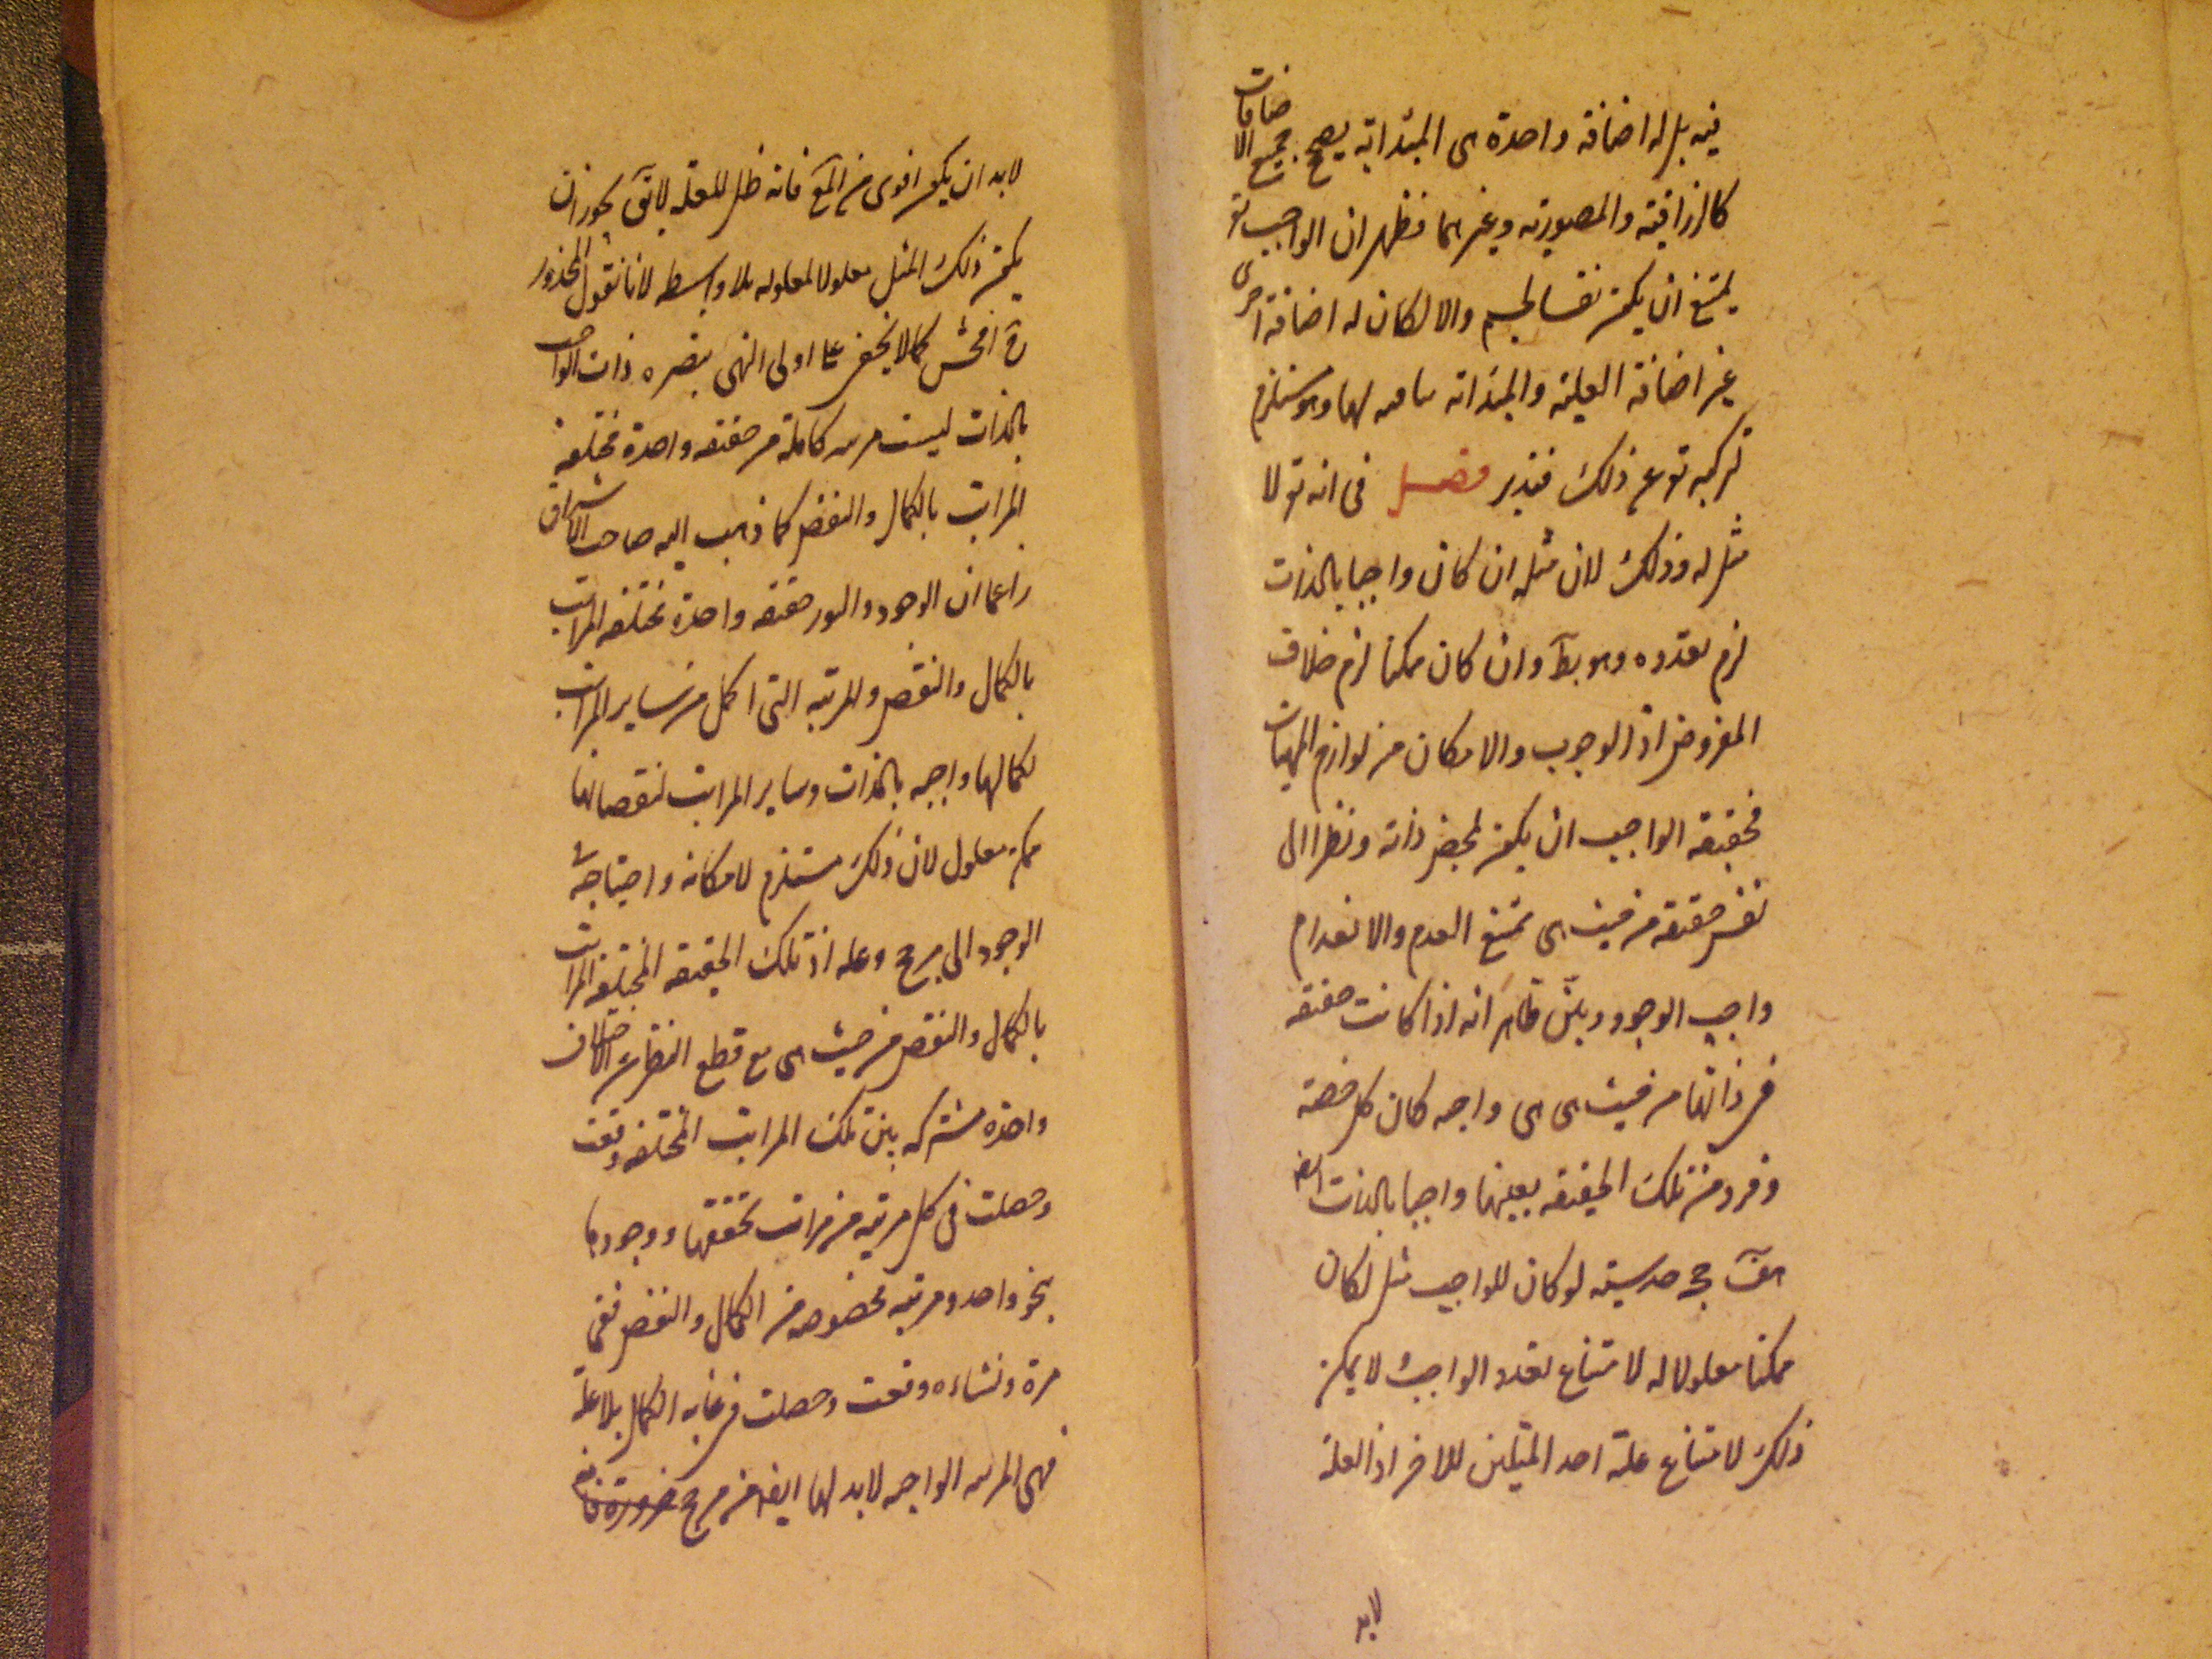 فيه بل له اضافة واحدة هى المبدائية يصحح جميع الاضافات
كالرزاقية والمصورية وغيرهما فظهر ان الواجب تع
يمتنع ان يكون نفسا لجسم والا لكان له اضافة اخرى
غير اضافة العلية والمبدائية لها وهو يستلزم
تركبه تع عن ذلك فتدبر فصل فى انه تع لا
مثل له وذلك لان مثله ان كان واجبا بالذات
لزم تعدده وهو بط وان كان ممكنا لزم خلاف
المفروض اذ الوجوب والامكان من لوازم المهيات
فحقيقة الواجب ان يكون بمحض ذاته ونظرا الى
نفس حقيقته من حيث هى تمتنع العدم والانعدام
واجب الوجود وبين ظاهر انه اذا كانت حقيقة
فى ذاتها من حيث هى هى واجبه كان كل حصة
وفرد من تلك الحقيقه بعينها واجبا بالذات ايض
هف حجة حدسية لو كان للواجب مثل لكان
ممكنا معلولا له لامتناع تعدد الواجب لا يمكن
ذلك لامتناع علية احد المثلين للاخر اذ العلة
لابد
لابد ان يكون اقوى من المع فانه ظل للعلة لا يق يجوز ان
يكون ذلك المثل معلولا لمعلوله بلا واسطه لانا نقول المحذور
ح افحش كما لا يخفى على اولى النهى تبصره ذات الواجب
بالذات ليست مرتبه كاملة من حقيقه واحدة مختلفة
المراتب بالكمال والنقص كما ذهب اليه صاحب الاشراق
زاعما ان الوجود والنور حقيقه واحدة مختلفه المراتب
بالكمال والنقص والمرتبه التى اكمل من ساير المراتب
لكمالها واجبه بالذات وساير المراتب لنقصانها
ممكن معلول لان ذلك مستلزم لامكانه واحتياجه
الوجود الى مرجح وعله اذ تلك الحقيقه المختلفه المراتب
بالكمال والنقص من حيث هى مع قطع النظر عن الاختلاف
واحدة مشتركه بين تلك المراتب المختلفه وقعت
وحصلت فى كل مرتبه من مراتب تحققها ووجودها
بنحو واحد ومرتبه مخصوصه من الكمال والنقص ففى
مرة ونشاءه وقعت وحصلت فى غايه الكمال بلا علة
فهى المرتبه الواجبه لابد لها ايضا من مرجح ضرورة فانه